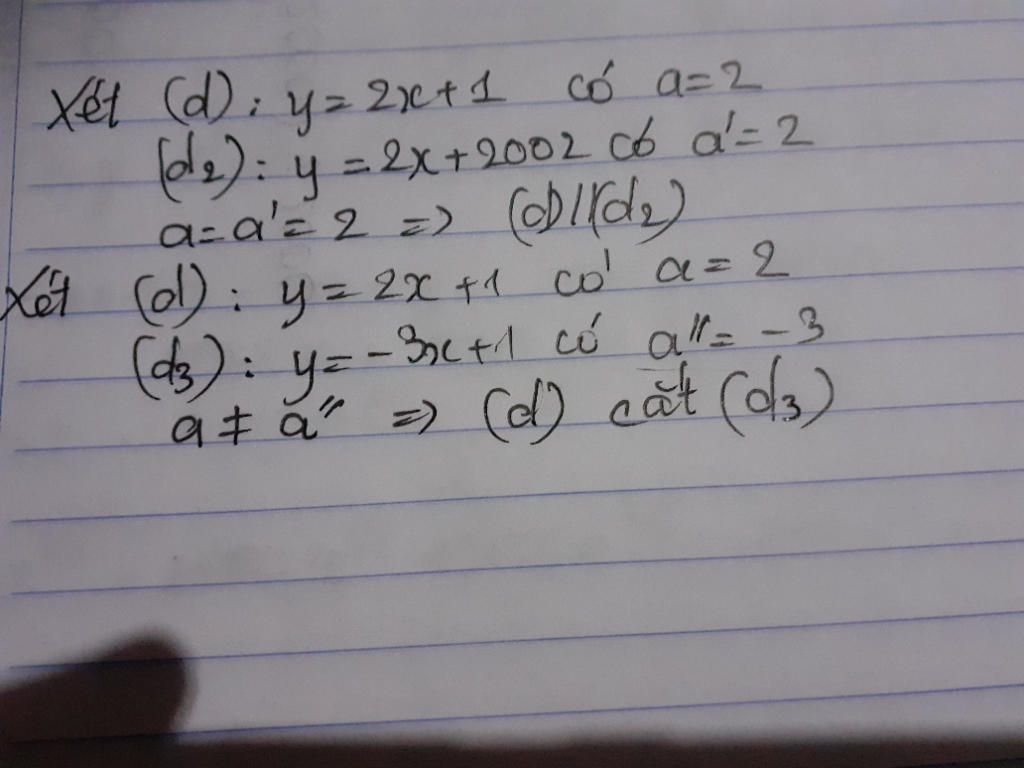 Xét (d): y = 2x + 1 có a = 2
(d2): y = 2x + 2002 có a' = 2
a = a' = 2 => (d) // (d2)
Xét (d): y = 2x + 1 có a = 2
(d3): y = -3x + 1 có a" = -3
a ≠ a" => (d) cắt (d3)